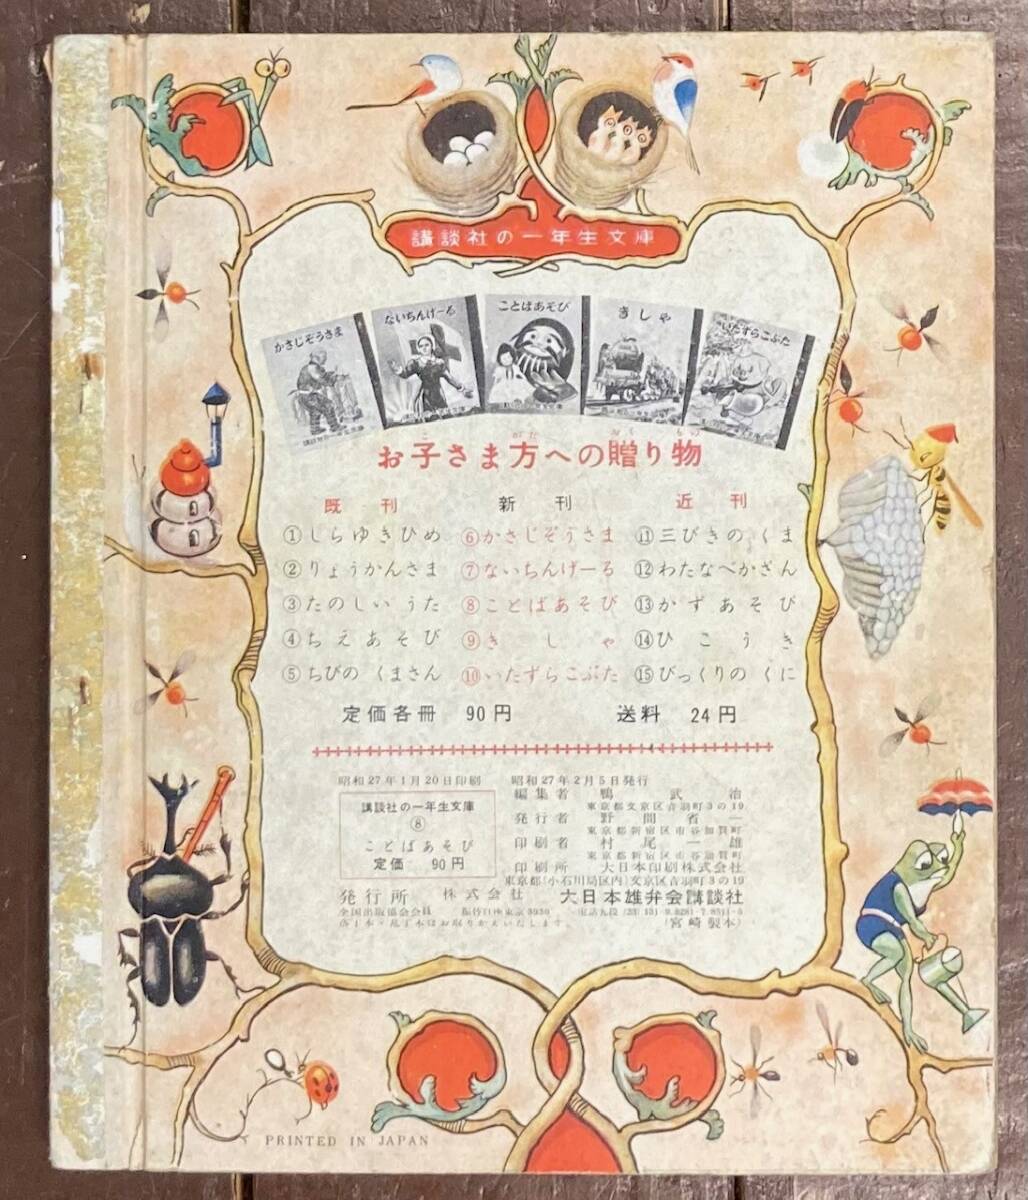 講談社の一年生文庫
かさじぞうさま
ないちんげーる
ことばあそび
きしゃ
いたずらこぶた
お子さま方への贈り物
既刊 新刊 近刊
①しらゆきひめ ⑥かさじぞうさま ⑪三びきの くま
②りょうかんさま ⑦ないちんげーる ⑫わたなべかざん
③たのしい うた ⑧ことばあそび ⑬かずあそび
④ちえあそび ⑨きしゃ ⑭ひこうき
⑤ちびの くまさん ⑩いたずらこぶた ⑮びっくりの くに
定価各冊 90円 送料 24円
昭和27年1月20日印刷 昭和27年2月5日発行
講談社の一年生文庫
⑧
ことばあそび
定価 90円
編集者 鴨武治
東京都文京区音羽町3の19
発行者 野間省一
東京都新宿区市谷加賀町
印刷者 村尾一雄
東京都新宿区市谷加賀町
印刷所 大日本印刷株式会社
東京都(小石川局区内)文京区音羽町3の19
発行所 株式会社 大日本雄弁会講談社
全国出版協会会員 振替口座東京3930
落丁本・乱丁本はお取りかえいたします。 (宮崎製本)
PRINTED IN JAPAN